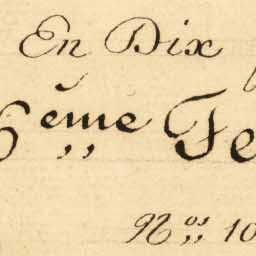 En Dix
6ème Fe
Nos 10